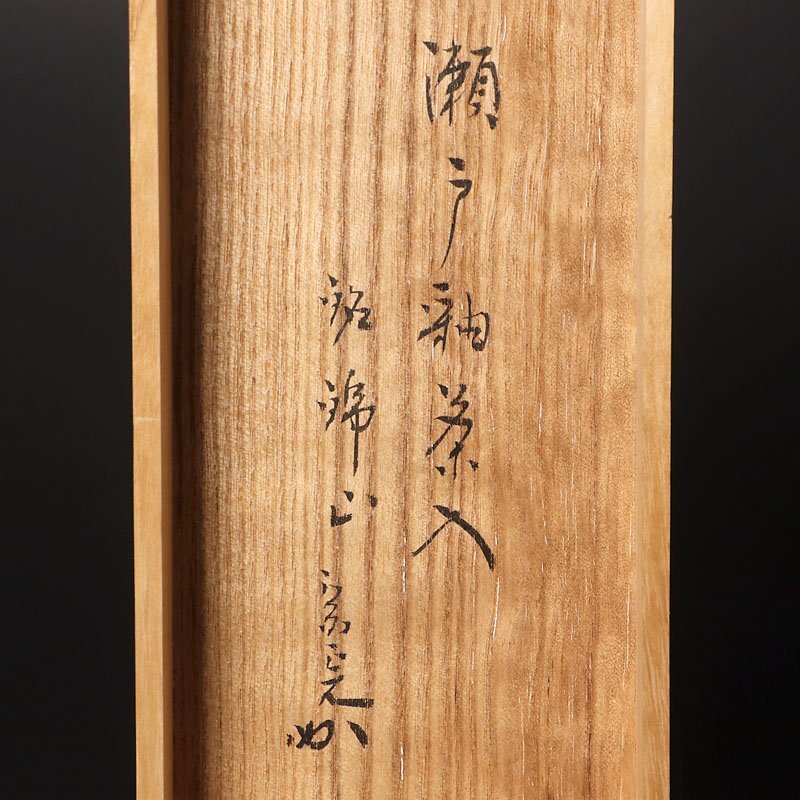 瀬戸釉茶入
銘 錦山